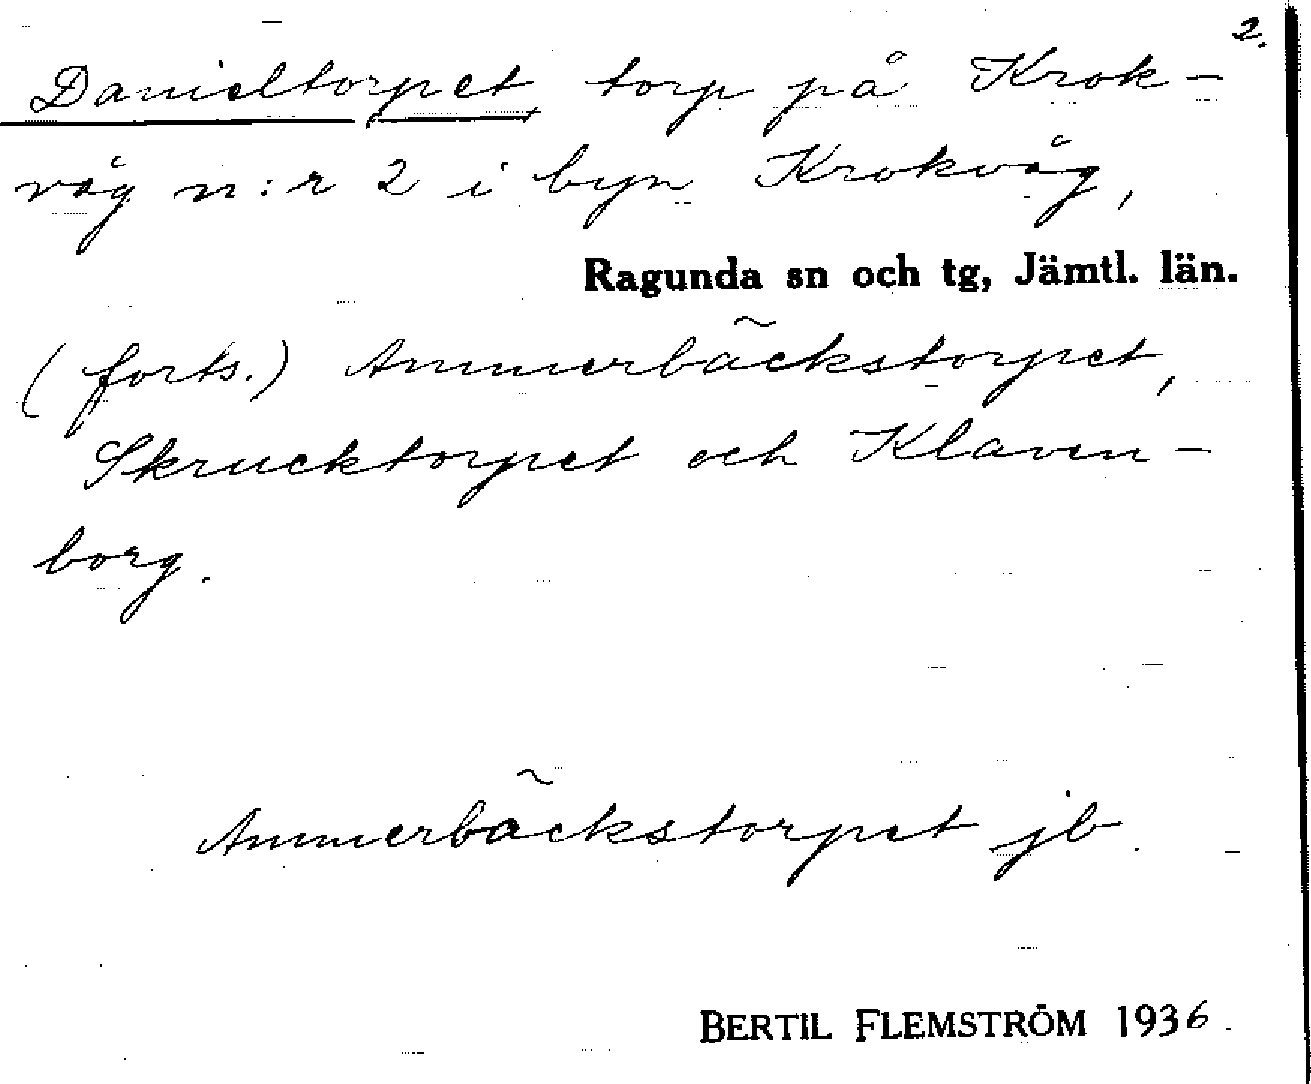 2.
Danieltorpet, torp på Krok-
våg n:r 2 i byn Krokvåg,
Ragunda sn och tg, Jämtl. län.
(forts.) Ammerbäckstorpet,
Skrucktorpet och Klaven-
borg.
Ammerbäckstorpet jb.
BERTIL FLEMSTRÖM 1936.